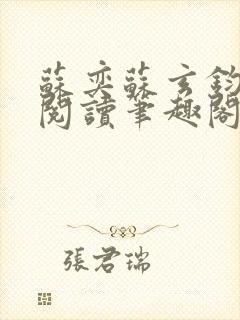 蘇奕蘇玄鈞
閱讀筆趣閣
張君瑞